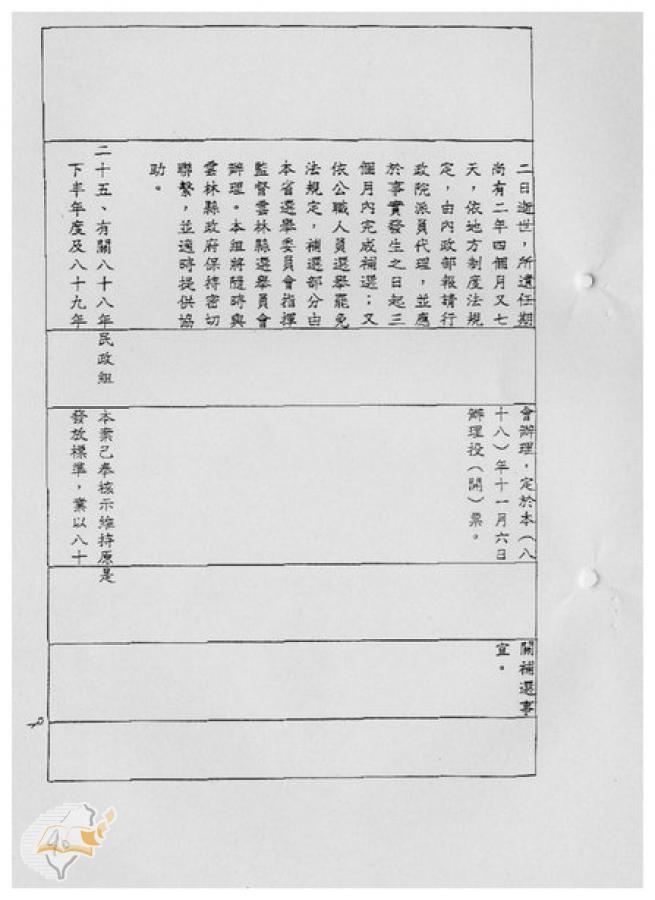 二日逝世，所遺任期
尚有二年四個月又七
天，依地方制度法規
定，由內政部報請行
政院派員代理，並應
於事實發生之日起三
個月內完成補選；又
依公職人員選舉罷免
法規定，補選部分由
本省選舉委員會指揮
監督雲林縣選舉員會
辦理。本組將隨時與
雲林縣政府保持密切
聯繫，並適時提供協
助。
會辦理，定於本（八
十八）年十一月六日
辦理投（開）票。
關補選事
宜。
二十五、有關八十八年
下半年度及八十九年
民政組
本案已奉核示維持原
發放標準，業以八十
是